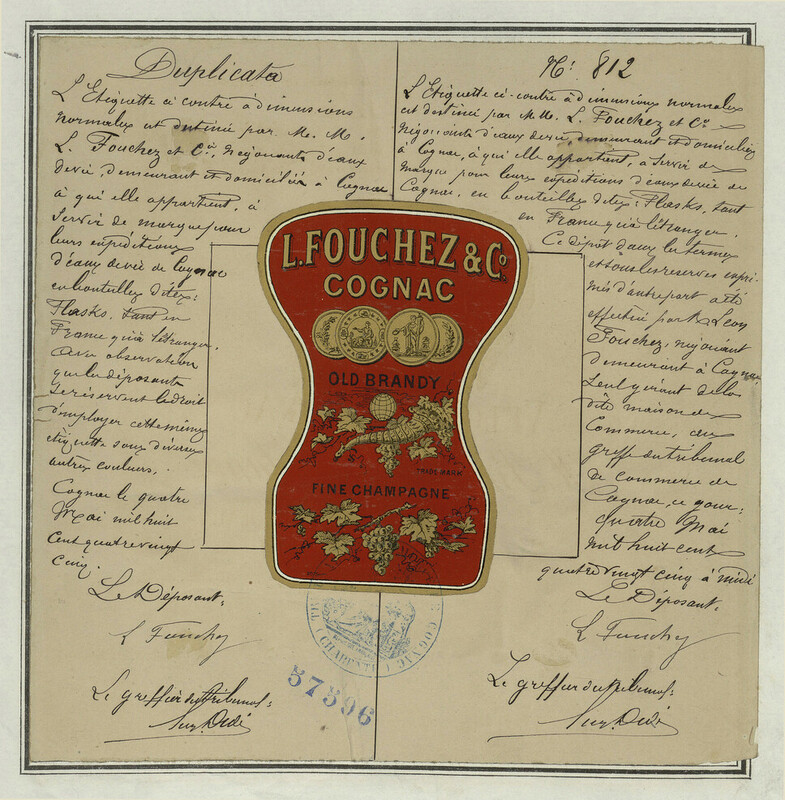 Duplicata
L'Etiquette ci contre à dimensions
normales est destinée par M. M.
L. Fouchez et Co, Négociants d'eaux
de vie, demeurant et domiciliés à Cognac
à qui elle appartient, à
servir de marque pour
leurs expéditions
d'eaux de vie de Cognac
en bouteilles dites:
Flasks, tant en
France qu'à l'étranger,
avec observation
que les déposants
se réservent le droit
d'employer cette même
étiquette sous diverses
autres couleurs.
Cognac le quatre
Mai mil huit
cent quatre vingt
cinq.
Le Déposant:
L Fouchez
Le greffier du tribunal:
No: 812
L'Etiquette ci-contre à dimensions normales
est destinée par M.M. L. Fouchez et Co
Négociants d'eaux de vie, demeurant et domiciliés
à Cognac, à qui elle appartient, à servir de
marque pour leurs expéditions d'eaux de vie de
Cognac, en bouteilles dites: Flasks, tant
en France qu'à l'étranger.
Ce dépôt dans les termes
et sous les réserves expri-
més d'autre part a été
effectué par M. Léon
Fouchez, négociant
demeurant à Cognac
seul gérant de la
dite maison de
Commerce, au
greffe du tribunal
de commerce de
Cognac, ce jour:
quatre Mai
mil huit cent
quatre vingt cinq à midi
Le Déposant:
L Fouchez
Le greffier du tribunal:
L. FOUCHEZ & Co.
COGNAC
OLD BRANDY
TRADE MARK
FINE CHAMPAGNE
COGNAC
(CHARENTE)
57596